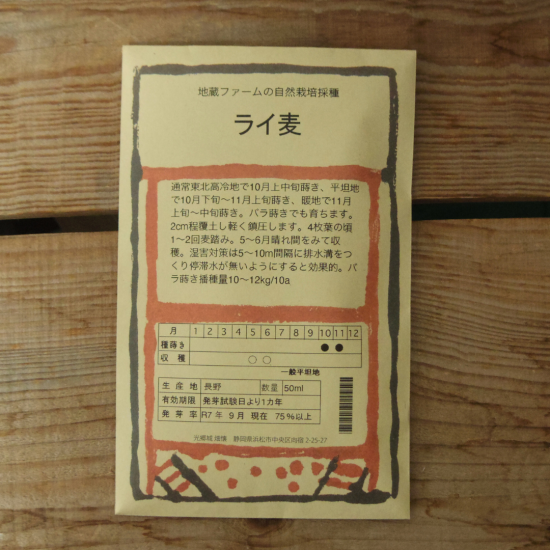 地蔵ファームの自然栽培採種
ライ麦
通常東北高冷地で10月上中旬蒔き、平坦地
で10月下旬〜11月上旬蒔き、暖地で11月
上旬〜中旬蒔き。バラ蒔きでも育ちます。
2cm程覆土し軽く鎮圧します。4枚葉の頃
1〜2回麦踏み。5〜6月晴れ間をみて収
穫。湿害対策は5〜10m間隔に排水溝をつ
くり停滞水が無いようにすると効果的。バ
ラ蒔き播種量10〜12kg/10a
月 1 2 3 4 5 6 7 8 9 10 11 12
種蒔き ● ●
収穫 ○ ○
一般平坦地
生産地 長野 数量 50ml
有効期限 発芽試験日より1カ年
発芽率 R7年 9月 現在 75%以上
光郷城 畑懐 静岡県浜松市中央区向宿 2-25-27